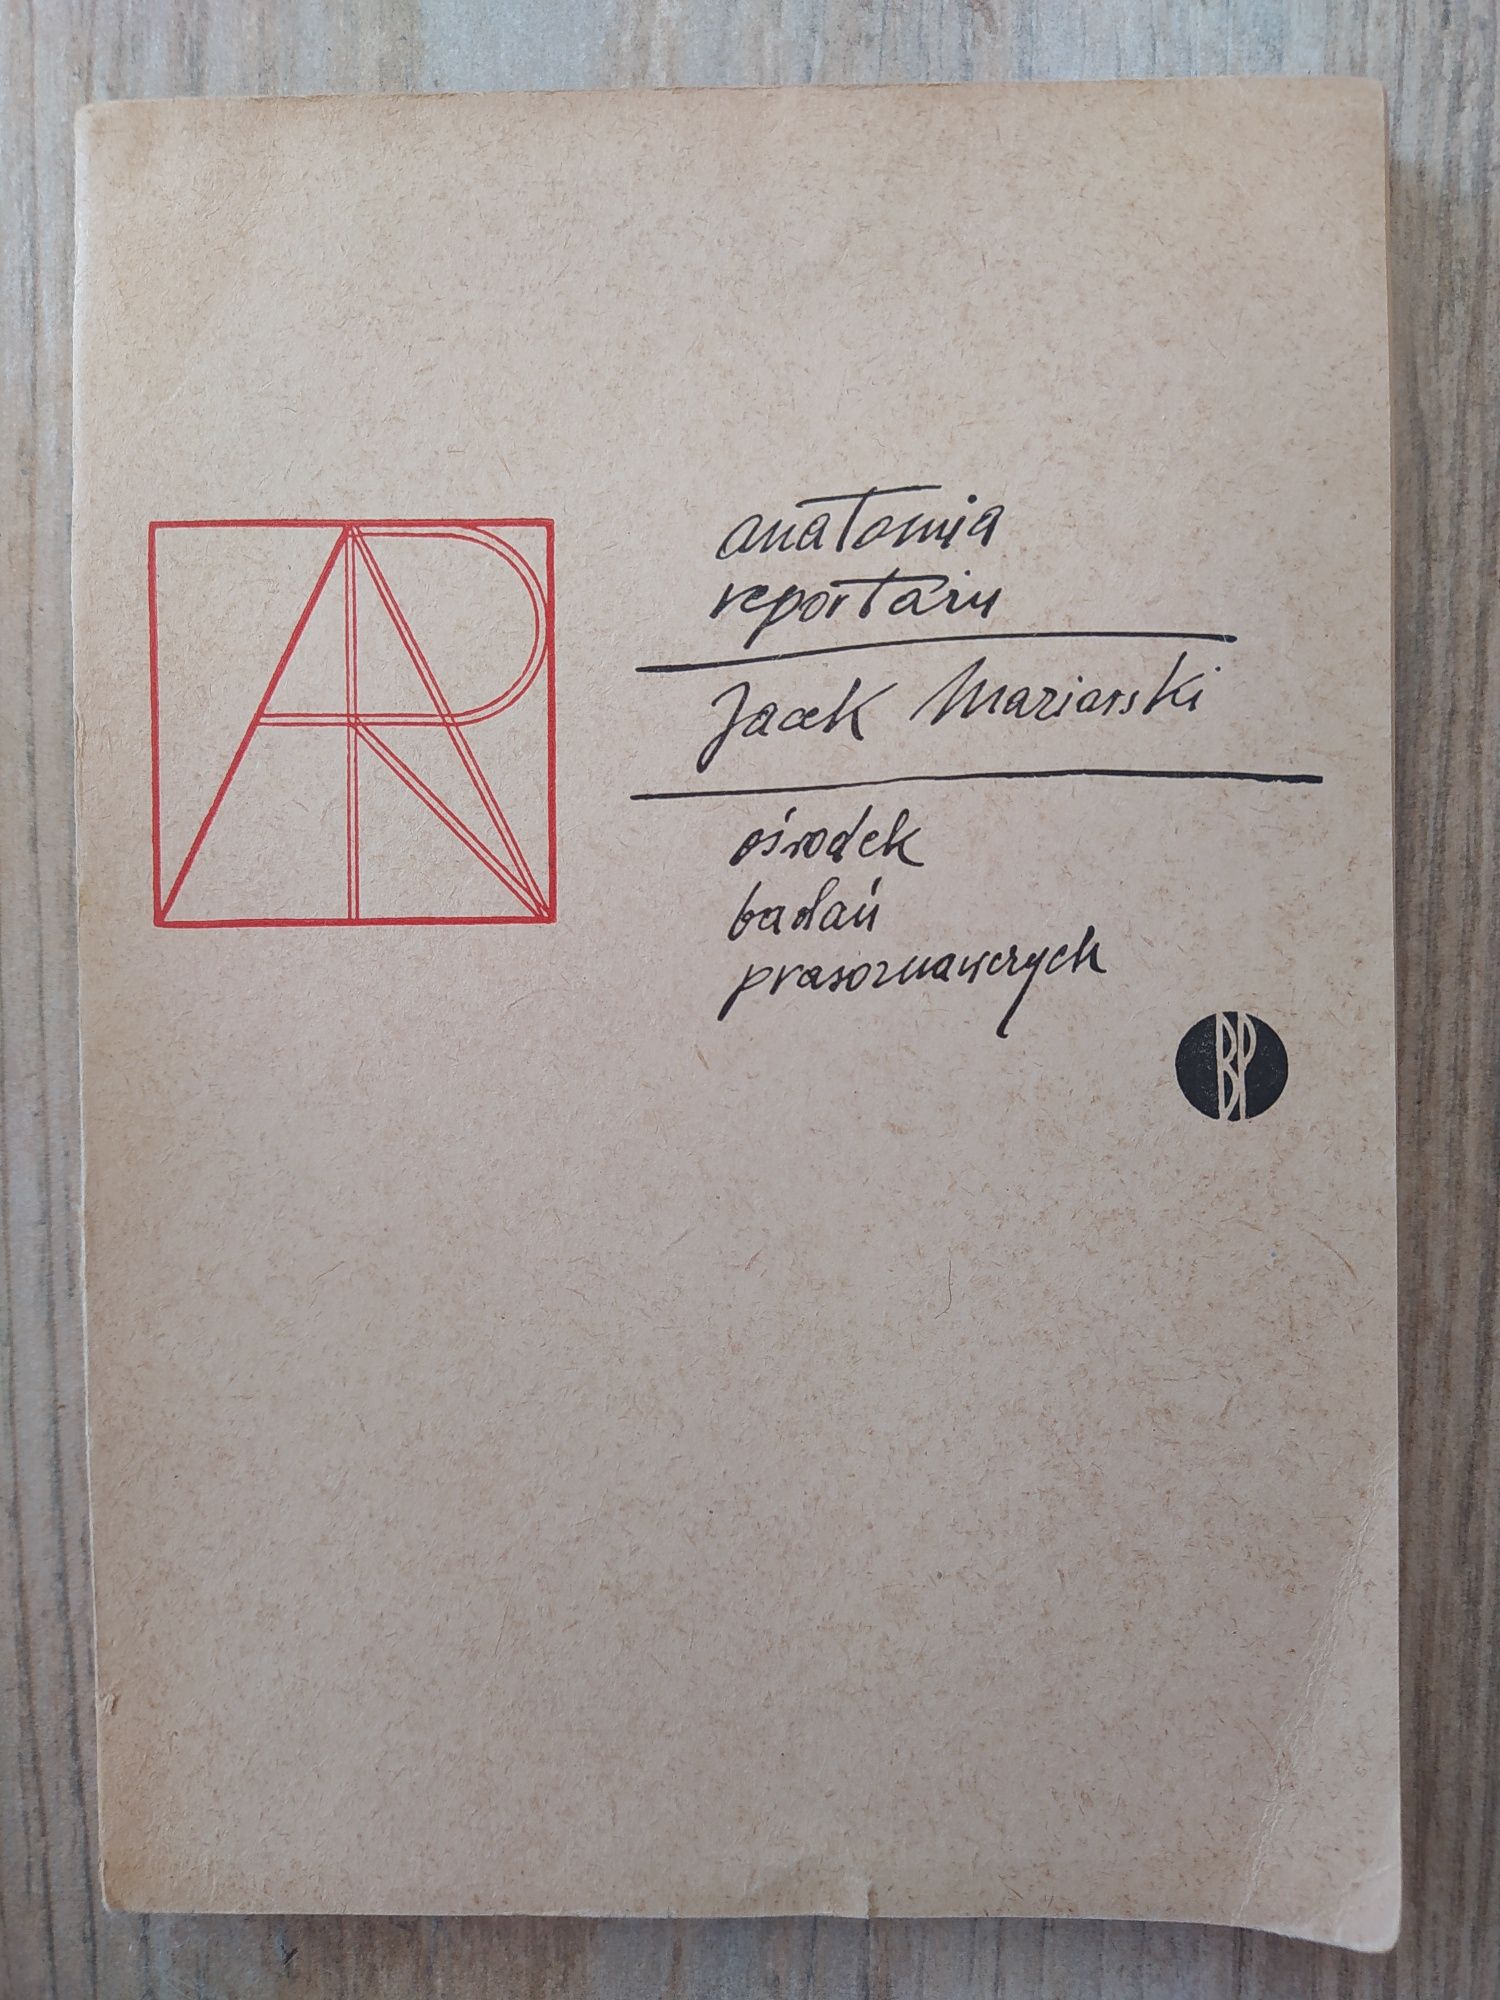 AR
anatomia
reportażu
Jacek Maziarski
ośrodek
badań
prasoznawczych
BP